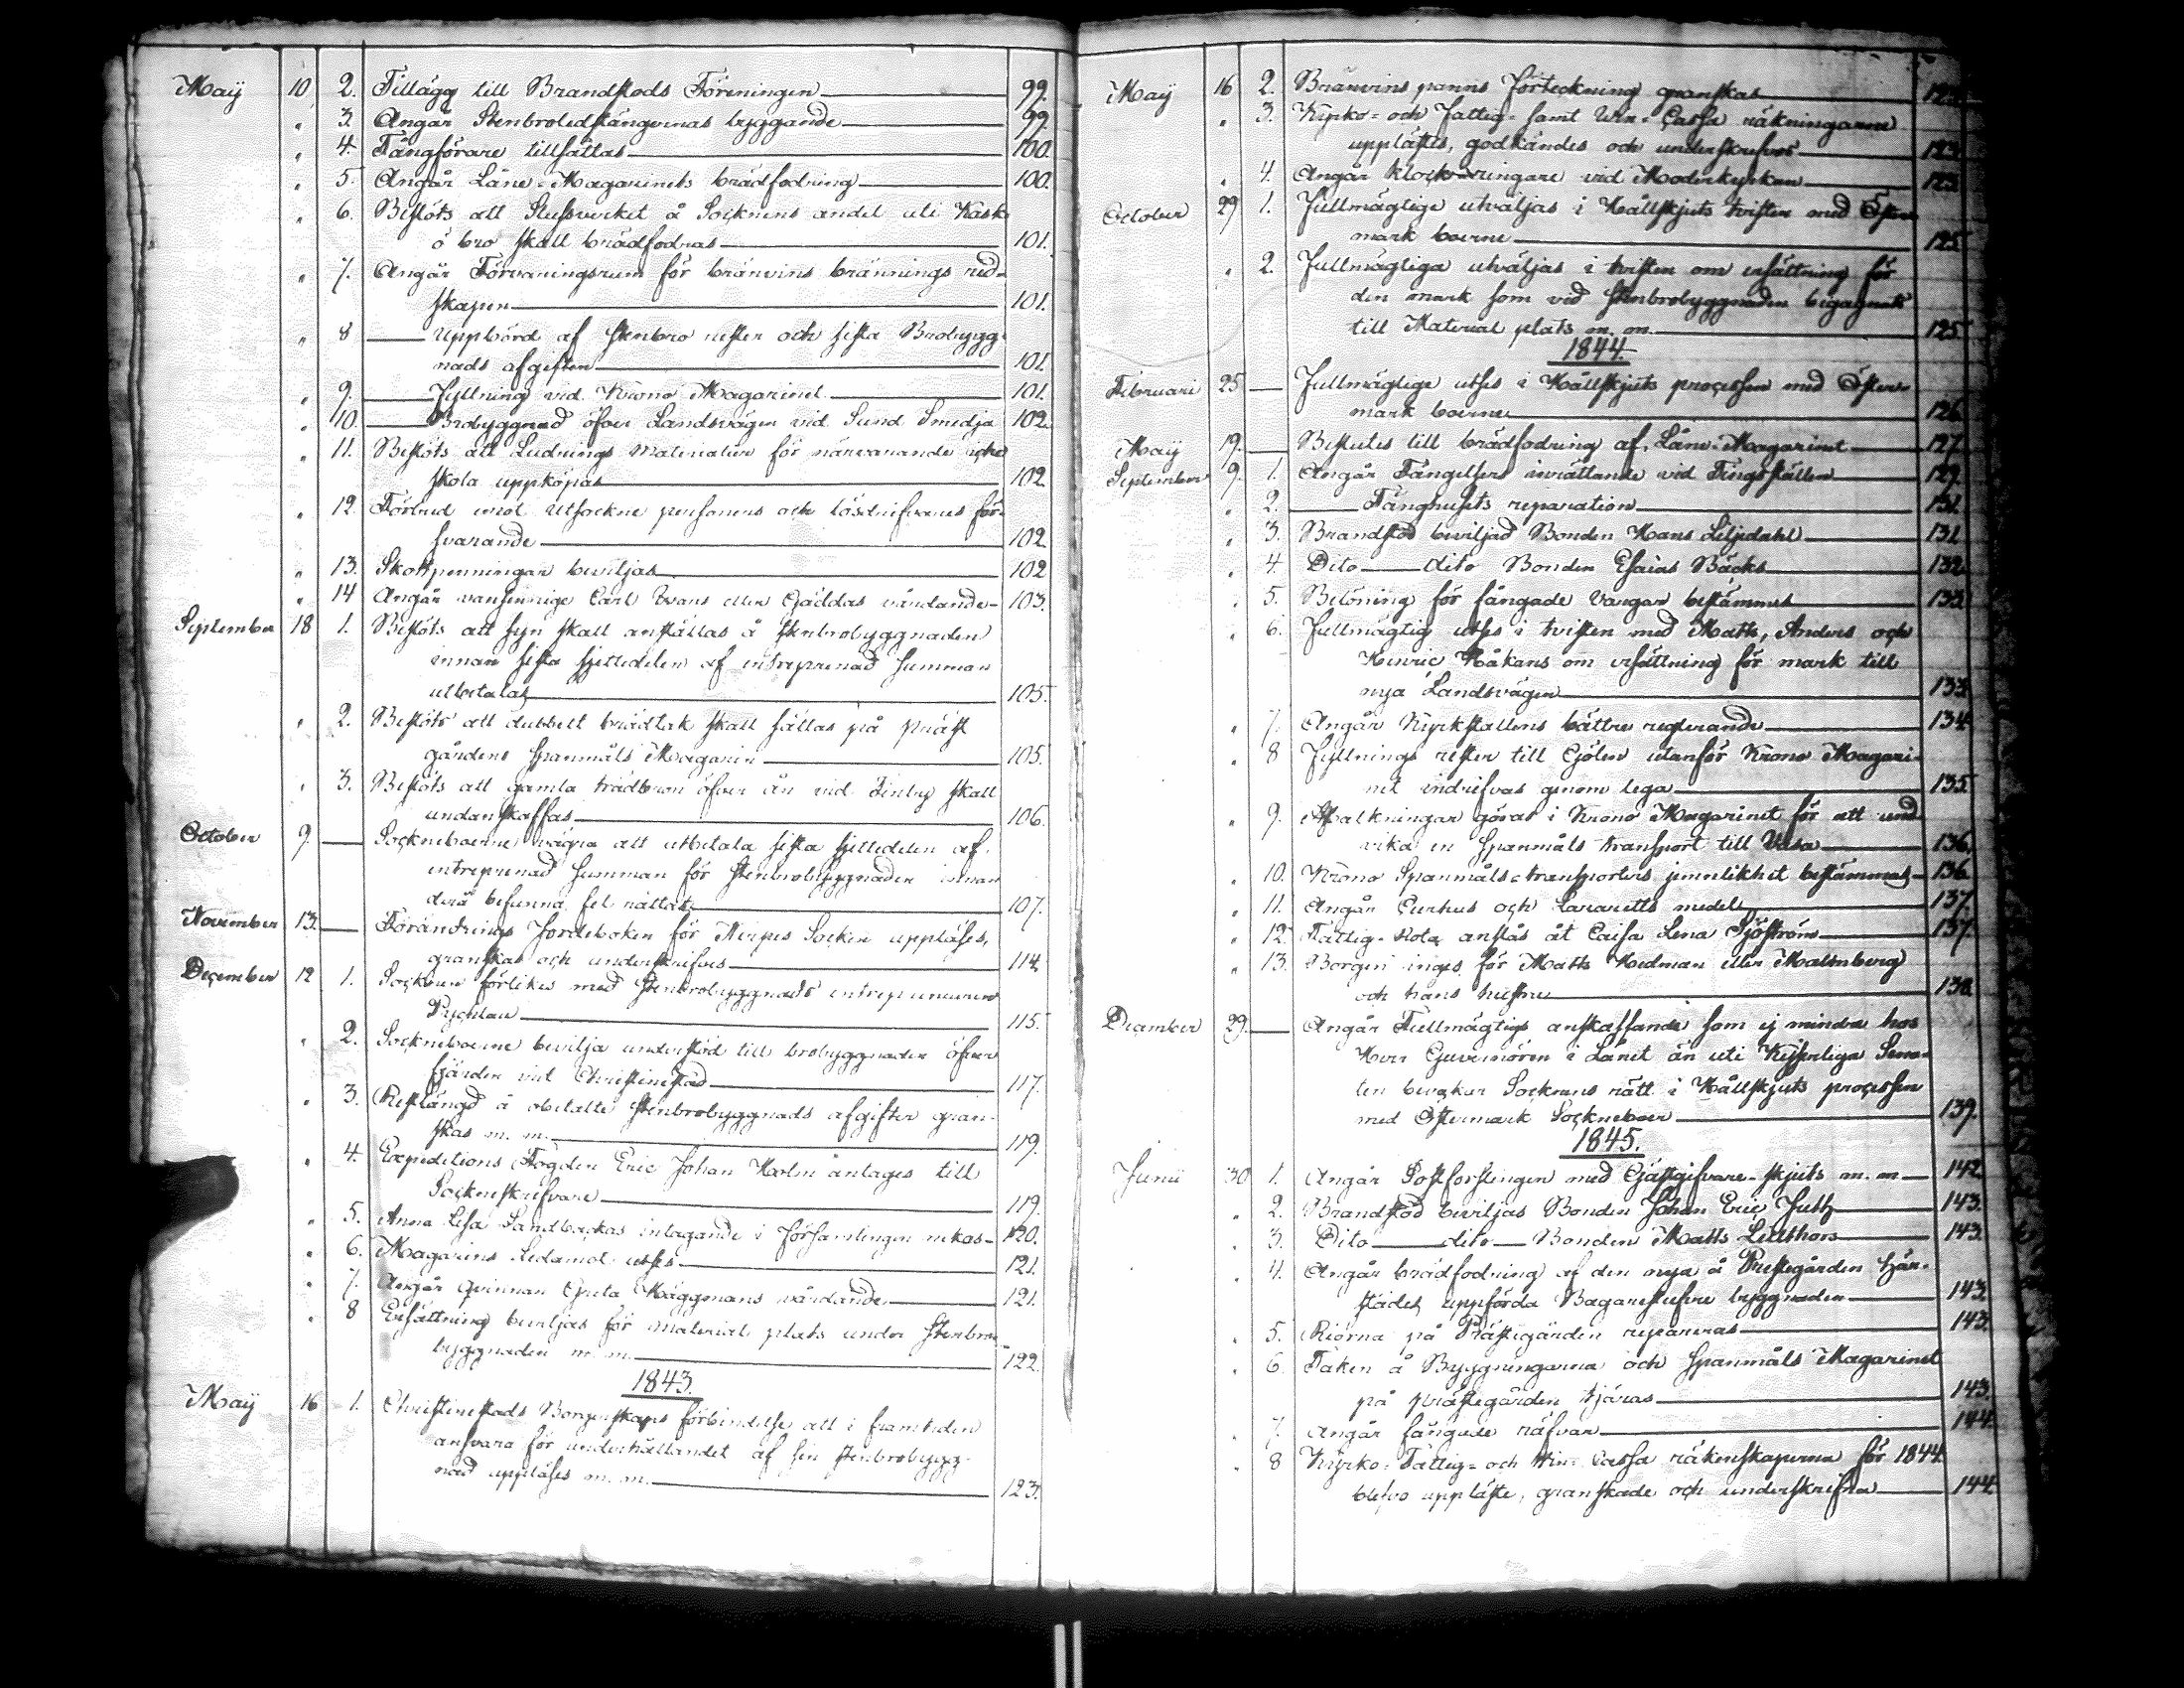 Maÿ 10 2. Tillägg till Brandstods Föreningen 99.
" 3. Angår Stenbroledstängernas byggande 99.
" 4. Fångförare tillsättas 100.
" 5. Angår Låne-Magazinets brädfodring 100.
" 6. Beslöts att Slussverket å Socknens andel uti Kask
ö bro skall brädfodras 101.
" 7. Angår Förvaringsrum för bränvins brännings red-
skapen 101.
" 8 Uppbörd af Stenbro rester och sista Brobygg-
nads afgiften 101.
" 9. Fyllning vid Krono Magazinet 101.
" 10. Brobyggnad öfver Landsvägen vid Sund Smedja 102.
" 11. Beslöts att Lednings Materialier för närvarande icke
skola uppköpas 102.
" 12. Förbud emot Utsockne personers och lösdrifvares för-
svarande 102.
" 13. Skottpenningar beviljas 102
" 14 Angår vansinnige Carl Evans eller Gäddas vårdande 103.
September 18 1. Beslöts att syn skall anställas å stenbrobyggnaden
innan sista sjettedelen af entreprenad summan
utbetalas 105.
" 2. Beslöts att dubbelt brädtak skall sättas på präst
gårdens Spanmåls Magazin 105.
" 3. Beslöts att gamla trädbron öfver ån vid Finby skall
undanskaffas 106.
October 9. Socknebœrne vägra att utbetala sista sjettedelen af
entreprenad Summan för Stenbrobyggnaden innan
derå befunna fel rättats 107.
November 13. Förändrings Jordeboken för Nerpes Socken uppläses,
granskas och underskrifves 114.
December 12 1. Socknen förlikes med Stenbrobyggnads entrepreneuren
Pychlau 115.
" 2. Socknebœrne bevilja understöd till brobyggnaden öfver
fjärden vid Christinestad 117.
" 3. Restlängd å obetalte Stenbrobyggnads afgifter gran-
skas m. m. 119.
" 4. Expeditions Fogden Eric Johan Holm antages till
Socknskrifvare 119.
" 5. Anna Lisa Sandbackas intagande i församlingen nekas 120.
" 6. Magazins Ledamot utses 121.
" 7. Angår qvinnan Greta Häggmans vårdande 121.
" 8 Ersättning beviljas för material plats under Stenbro
byggnaden m. m. 122.
1843.
Maÿ 16 1. Christinestads Borgerskaps förbindelse att i framtiden
ansvara för underhållandet af sin stenbrobygg-
nad uppläses m. m. 123.
Maÿ 16 2. Bränvins panns förteckning granskas 123.
" 3. Kyrko- och Fattig- samt Vin- Cassa räkningarne
upplästes, godkändes och underskrefvos 123.
" 4. Angår klockringare vid Moderkyrkan 123.
October 29 1. Fullmägtige utväljas i Hållskjuts tvisten med Öster
mark boerne 125.
" 2. Fullmägtiga utväljas i tvisten om ersättning för
den mark som vid Stenbrobyggnaden begagnats
till Material plats m. m. 125
1844.
Februari 25 Fullmägtige utses i Hållskjuts processen med Öster-
mark boerne 126.
Maÿ 19. Beslutes till brädfodring af Låne-Magazinet 127.
September 9. 1. Angår Fängelsers inrättande vid Tingsställen 129.
" 2. Fånghusets reparation 131.
" 3. Brandstod beviljad Bonden Hans Liljedahl 131.
" 4. Dito dito Bonden Esaias Bäcks 132.
" 5. Belöning för fångade Vargar bestämmes 133.
" 6. Fullmägtig utses i tvisten med Matts, Anders och
Henric Håkans om ersättning för mark till
nya Landsvägen 133.
" 7. Angår Kyrkstallens bättre reglerande 134.
" 8 Fyllnings rester till Gölen utanför Krono Magazi-
net indrifvas genom lega 135.
" 9. Afbalkningar göras i Krono Magazinet för att und
vika en Spanmåls transport till Vasa 136.
" 10. Krono Spanmåls transporters jemnlikhet bestämmas 136.
" 11. Angår Curhus och Lazaretts medel 137.
" 12. Fattig-Rota anslås åt Caisa Lena Sjöström 137.
" 13. Borgen inges för Matts Hedman eller Malmberg
och hans hustru 138.
December 29. Angår Fullmägtigs anskaffande som ej mindre hos
Herr Guvernören i Länet än uti Kejserliga Sena-
ten bevakar Socknens rätt i Hållskjuts processen
med Östermark Socknebœr 139.
1845.
Junii 30 1. Angår Postforslingen med Gästgifvare-skjuts m. m 142.
" 2. Brandstod beviljas Bonden Johan Eric Juth 143.
" 3. Dito dito Bonden Matts Lillthors 143.
" 4. Angår brädfodning af den nya å Prestegården här-
städes uppförda Bagarestufve byggnaden 143.
" 5. Riorna på Prästegården repareras 143.
" 6. Taken å Byggningarna och Spanmåls Magazinet
på prästegården tjäras 143.
" 7. Angår fångade räfvar 144.
" 8 Kyrko- Fattig- och Vin- Cassa räkenskaperna för 1844
blefvo upplästa, granskade och underskrifna 144.